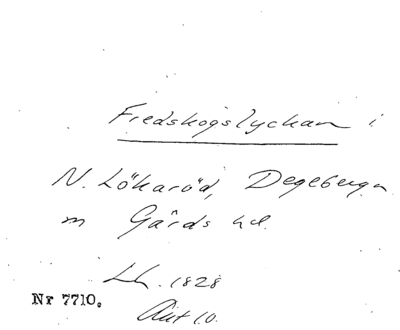 Fredskogslyckan i
N. Lökaröd, Degeberga
m Gärds hd.
Lh. 1828
Nr 7710.
Akt 10.